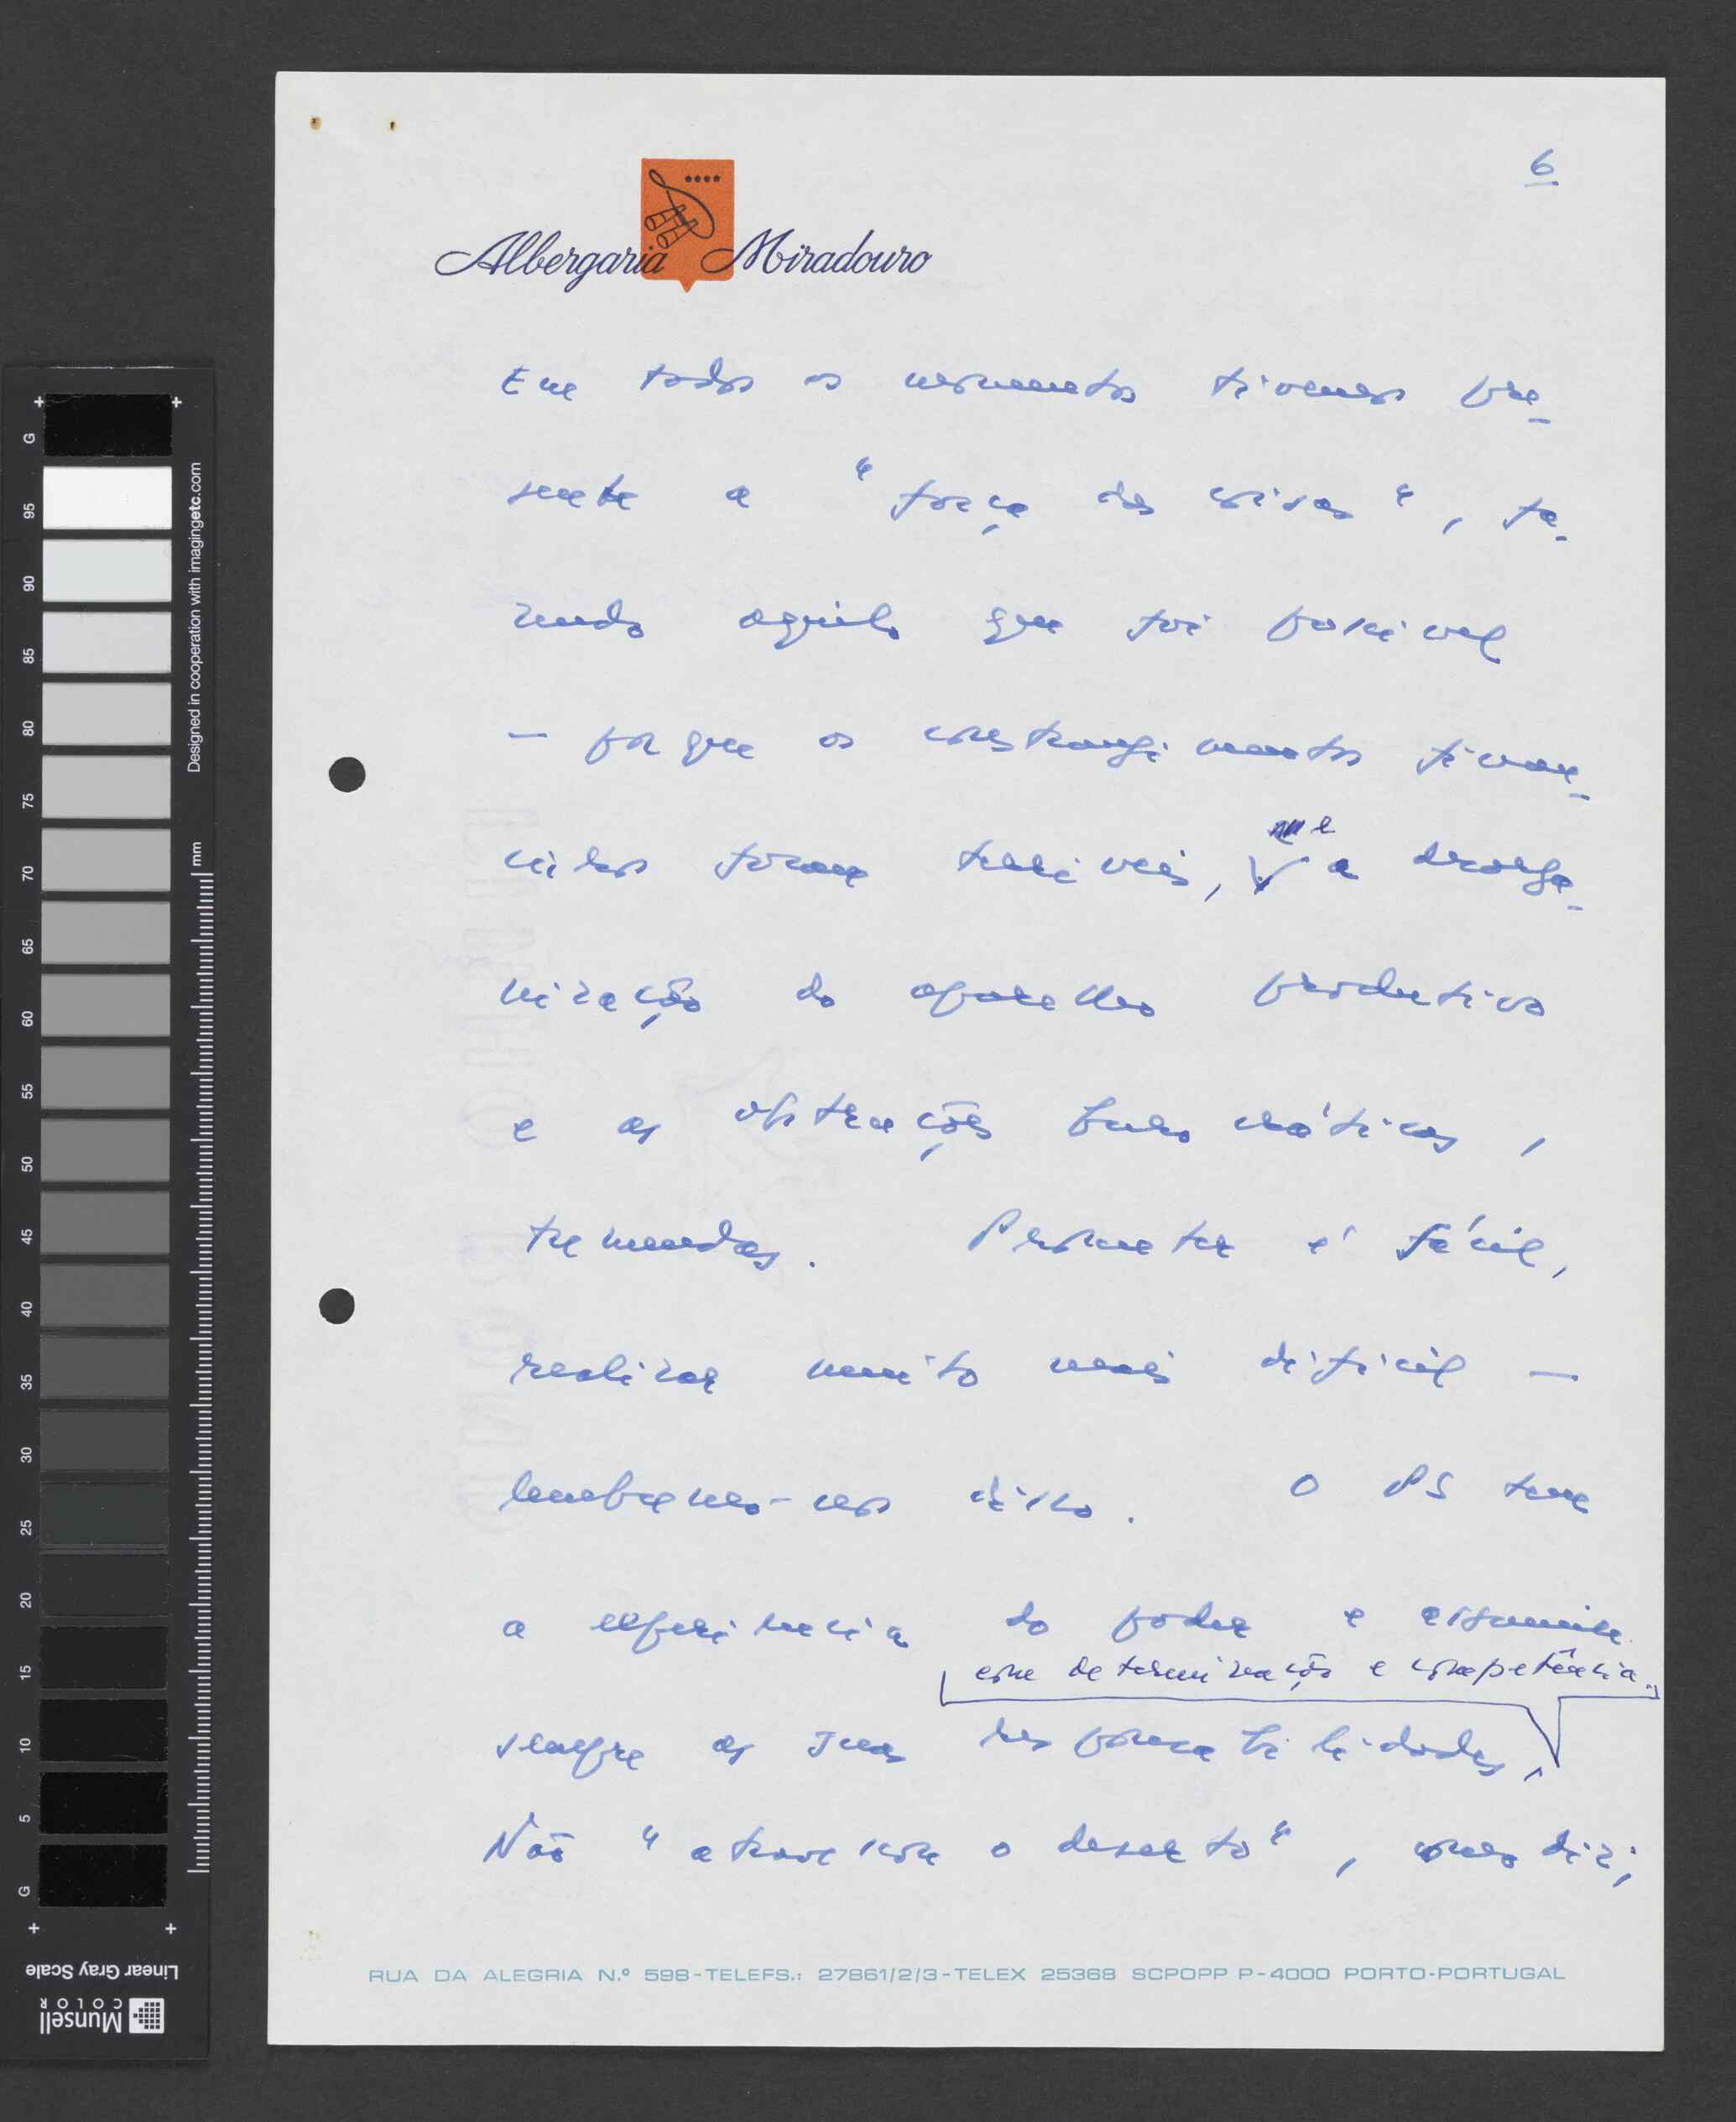 6
Albergaria Miradouro
Em todos os momentos tivemos pre-
sente a "força das coisas", fa-
zendo aquilo que foi possivel
— porque os constrangimentos finan-
ceiros foram terriveis, e a desorga-
nização do aparelho produtivo
e as obstruções burocráticas,
tremendas. Prometer é fácil,
realizar muito mais dificil —
lembremo-nos disso. O PS tem
a experiência do poder e assumiu
com determinação e competência.
sempre as suas responsabilidades,
Não "atravessou o deserto", como diz;
RUA DA ALEGRIA N.º 598-TELEFS.: 27861/2/3-TELEX 25368 SCPOPP P-4000 PORTO-PORTUGAL
G
95
90
85
80
75
70
65
60
55
50
45
40
35
30
25
20
15
10
5
G
Designed in cooperation with imagingetc.com
mm
Linear Gray Scale
Munsell
COLOR